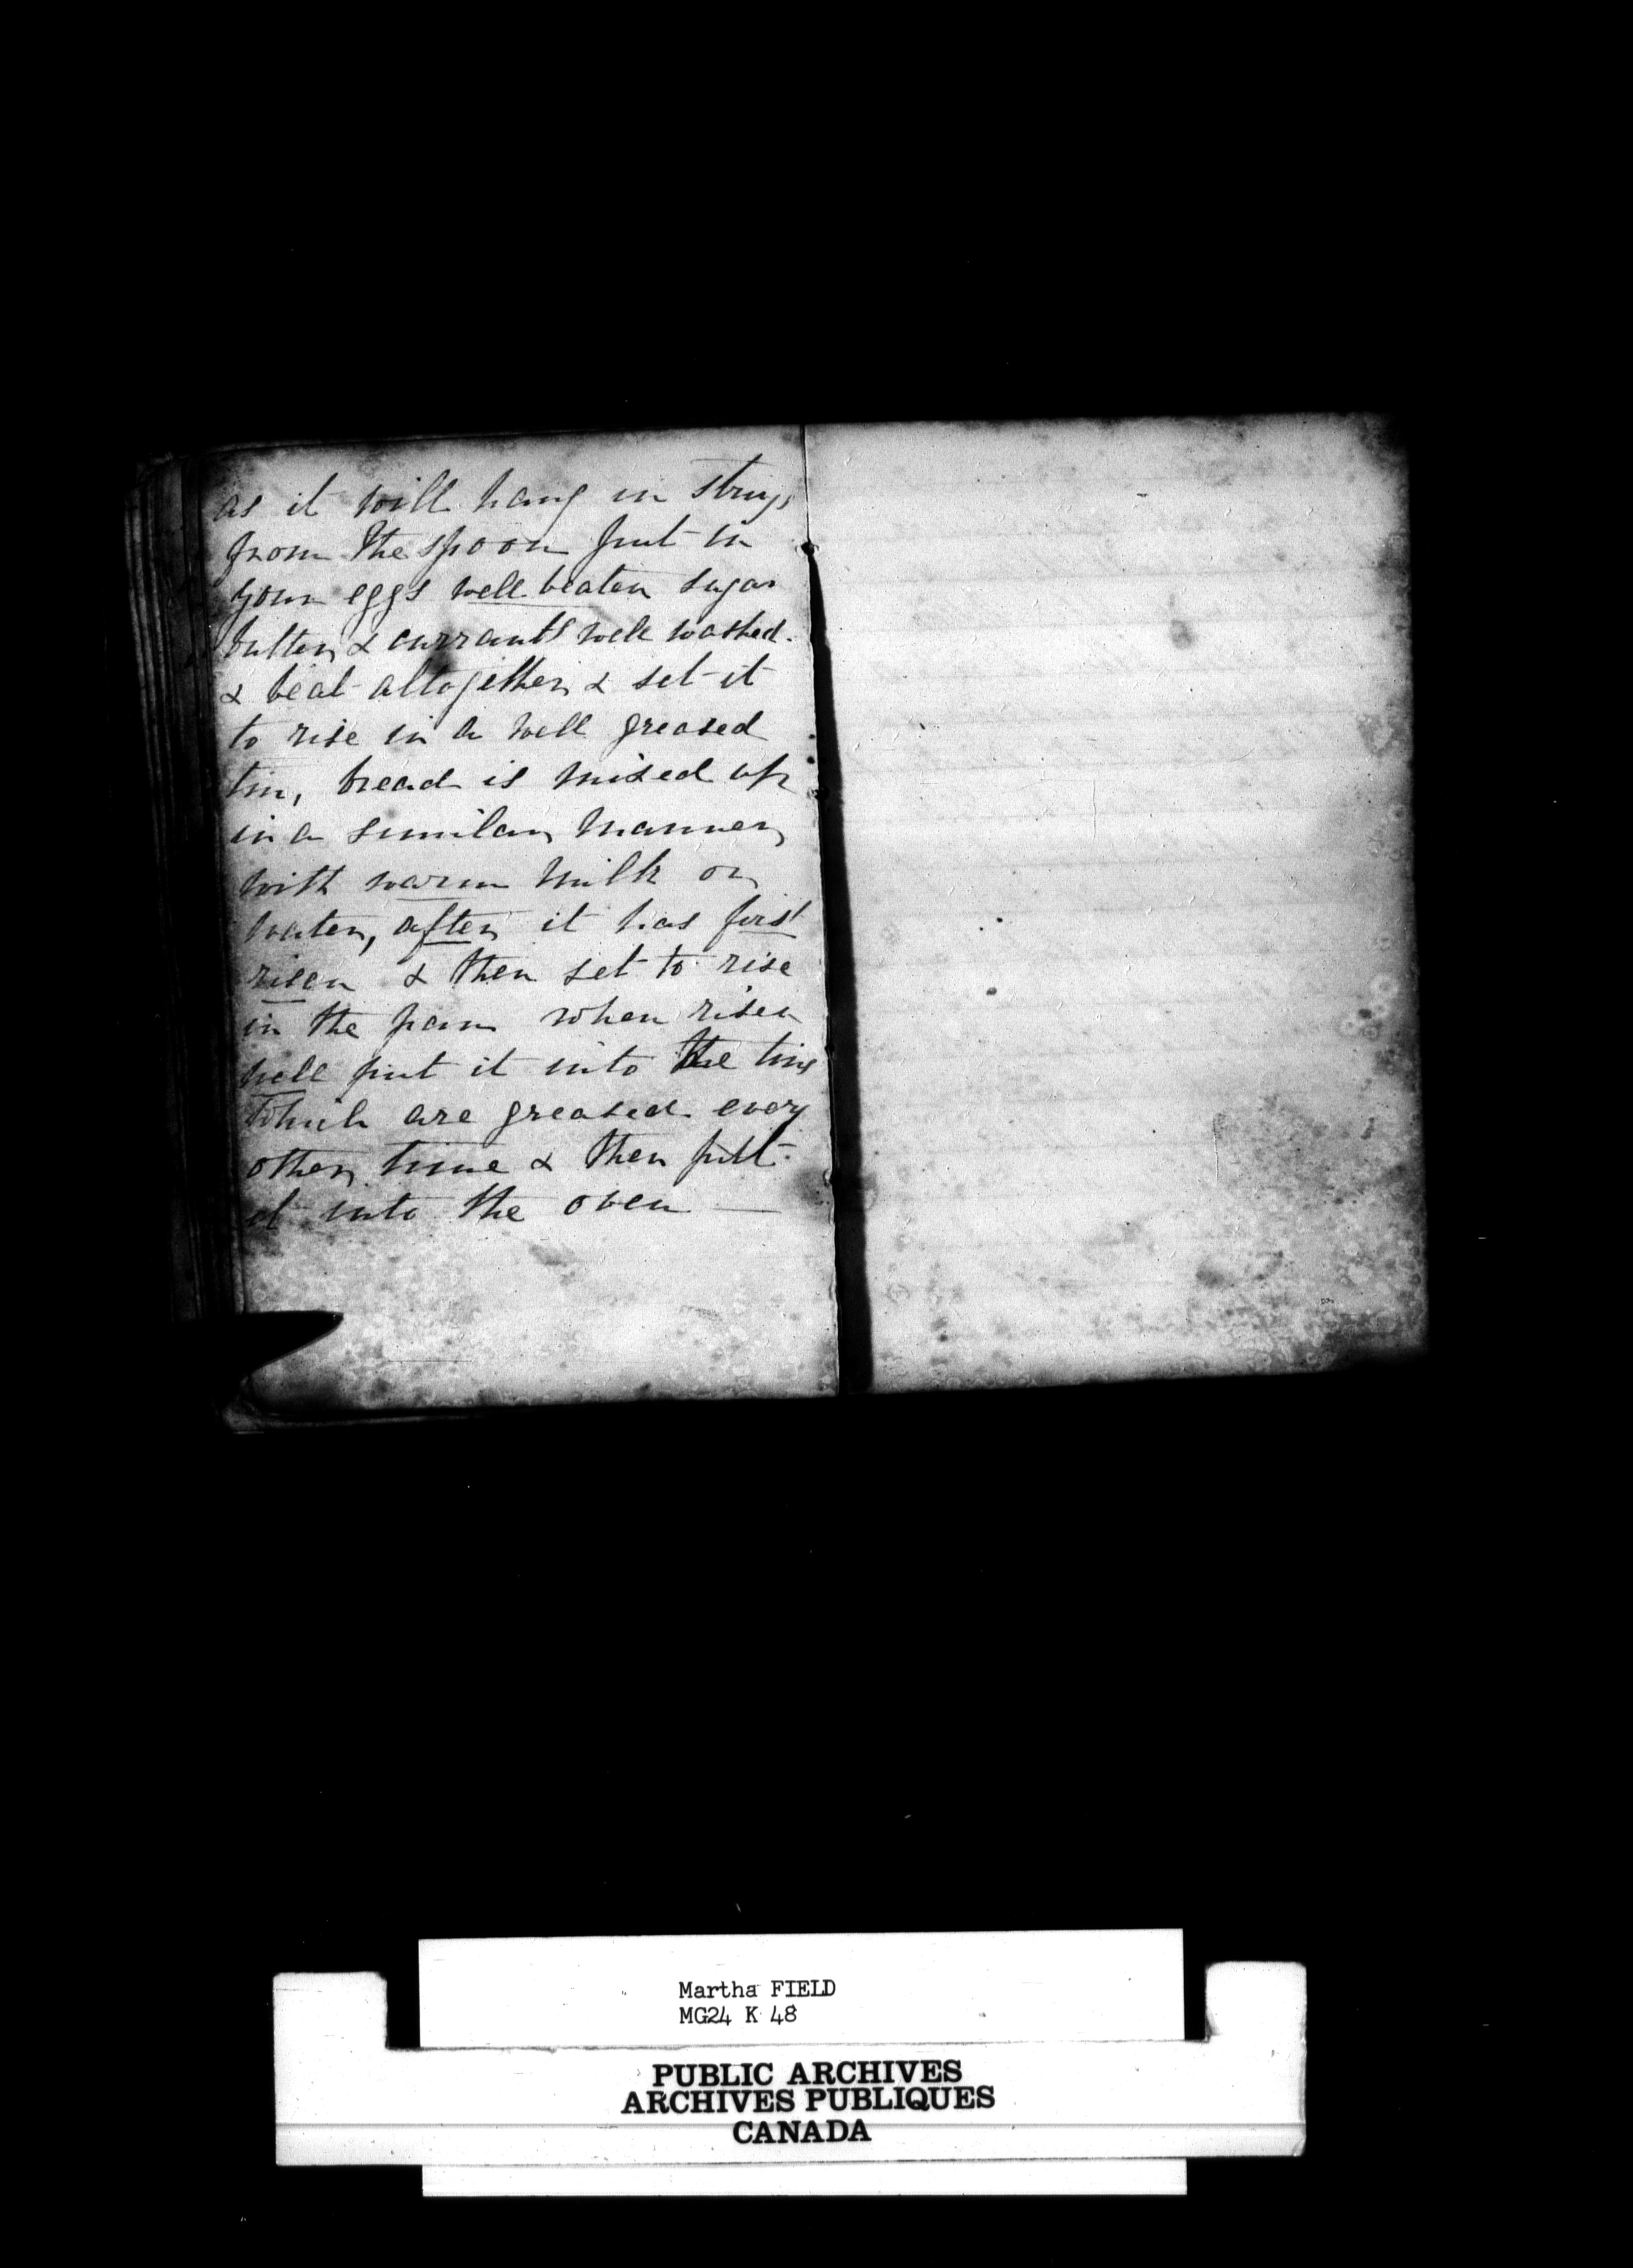 as it will hang in strings
from the spoon put in
your eggs well beaten sugar
butter & currants well washed.
& beat altogether & set it
to rise in a well greased
tin, bread is mixed up
in a similar manner
with warm milk or
water, after it has first
risen & then set to rise
in the pan when risen
well put it into the tins
which are greased every
other time & then put
it into the oven —
Martha FIELD
MG24 K 48
PUBLIC ARCHIVES
ARCHIVES PUBLIQUES
CANADA